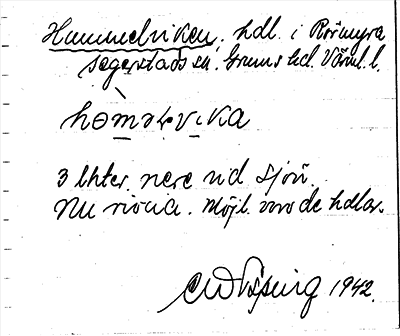 Hummelviken, hdl. i Rörmyra
Segerstads sn. Grums hd. Värml. l.
3 lhter. nere vid sjön.
Nu rivna. Möjl. voro de hdlar.
1942.